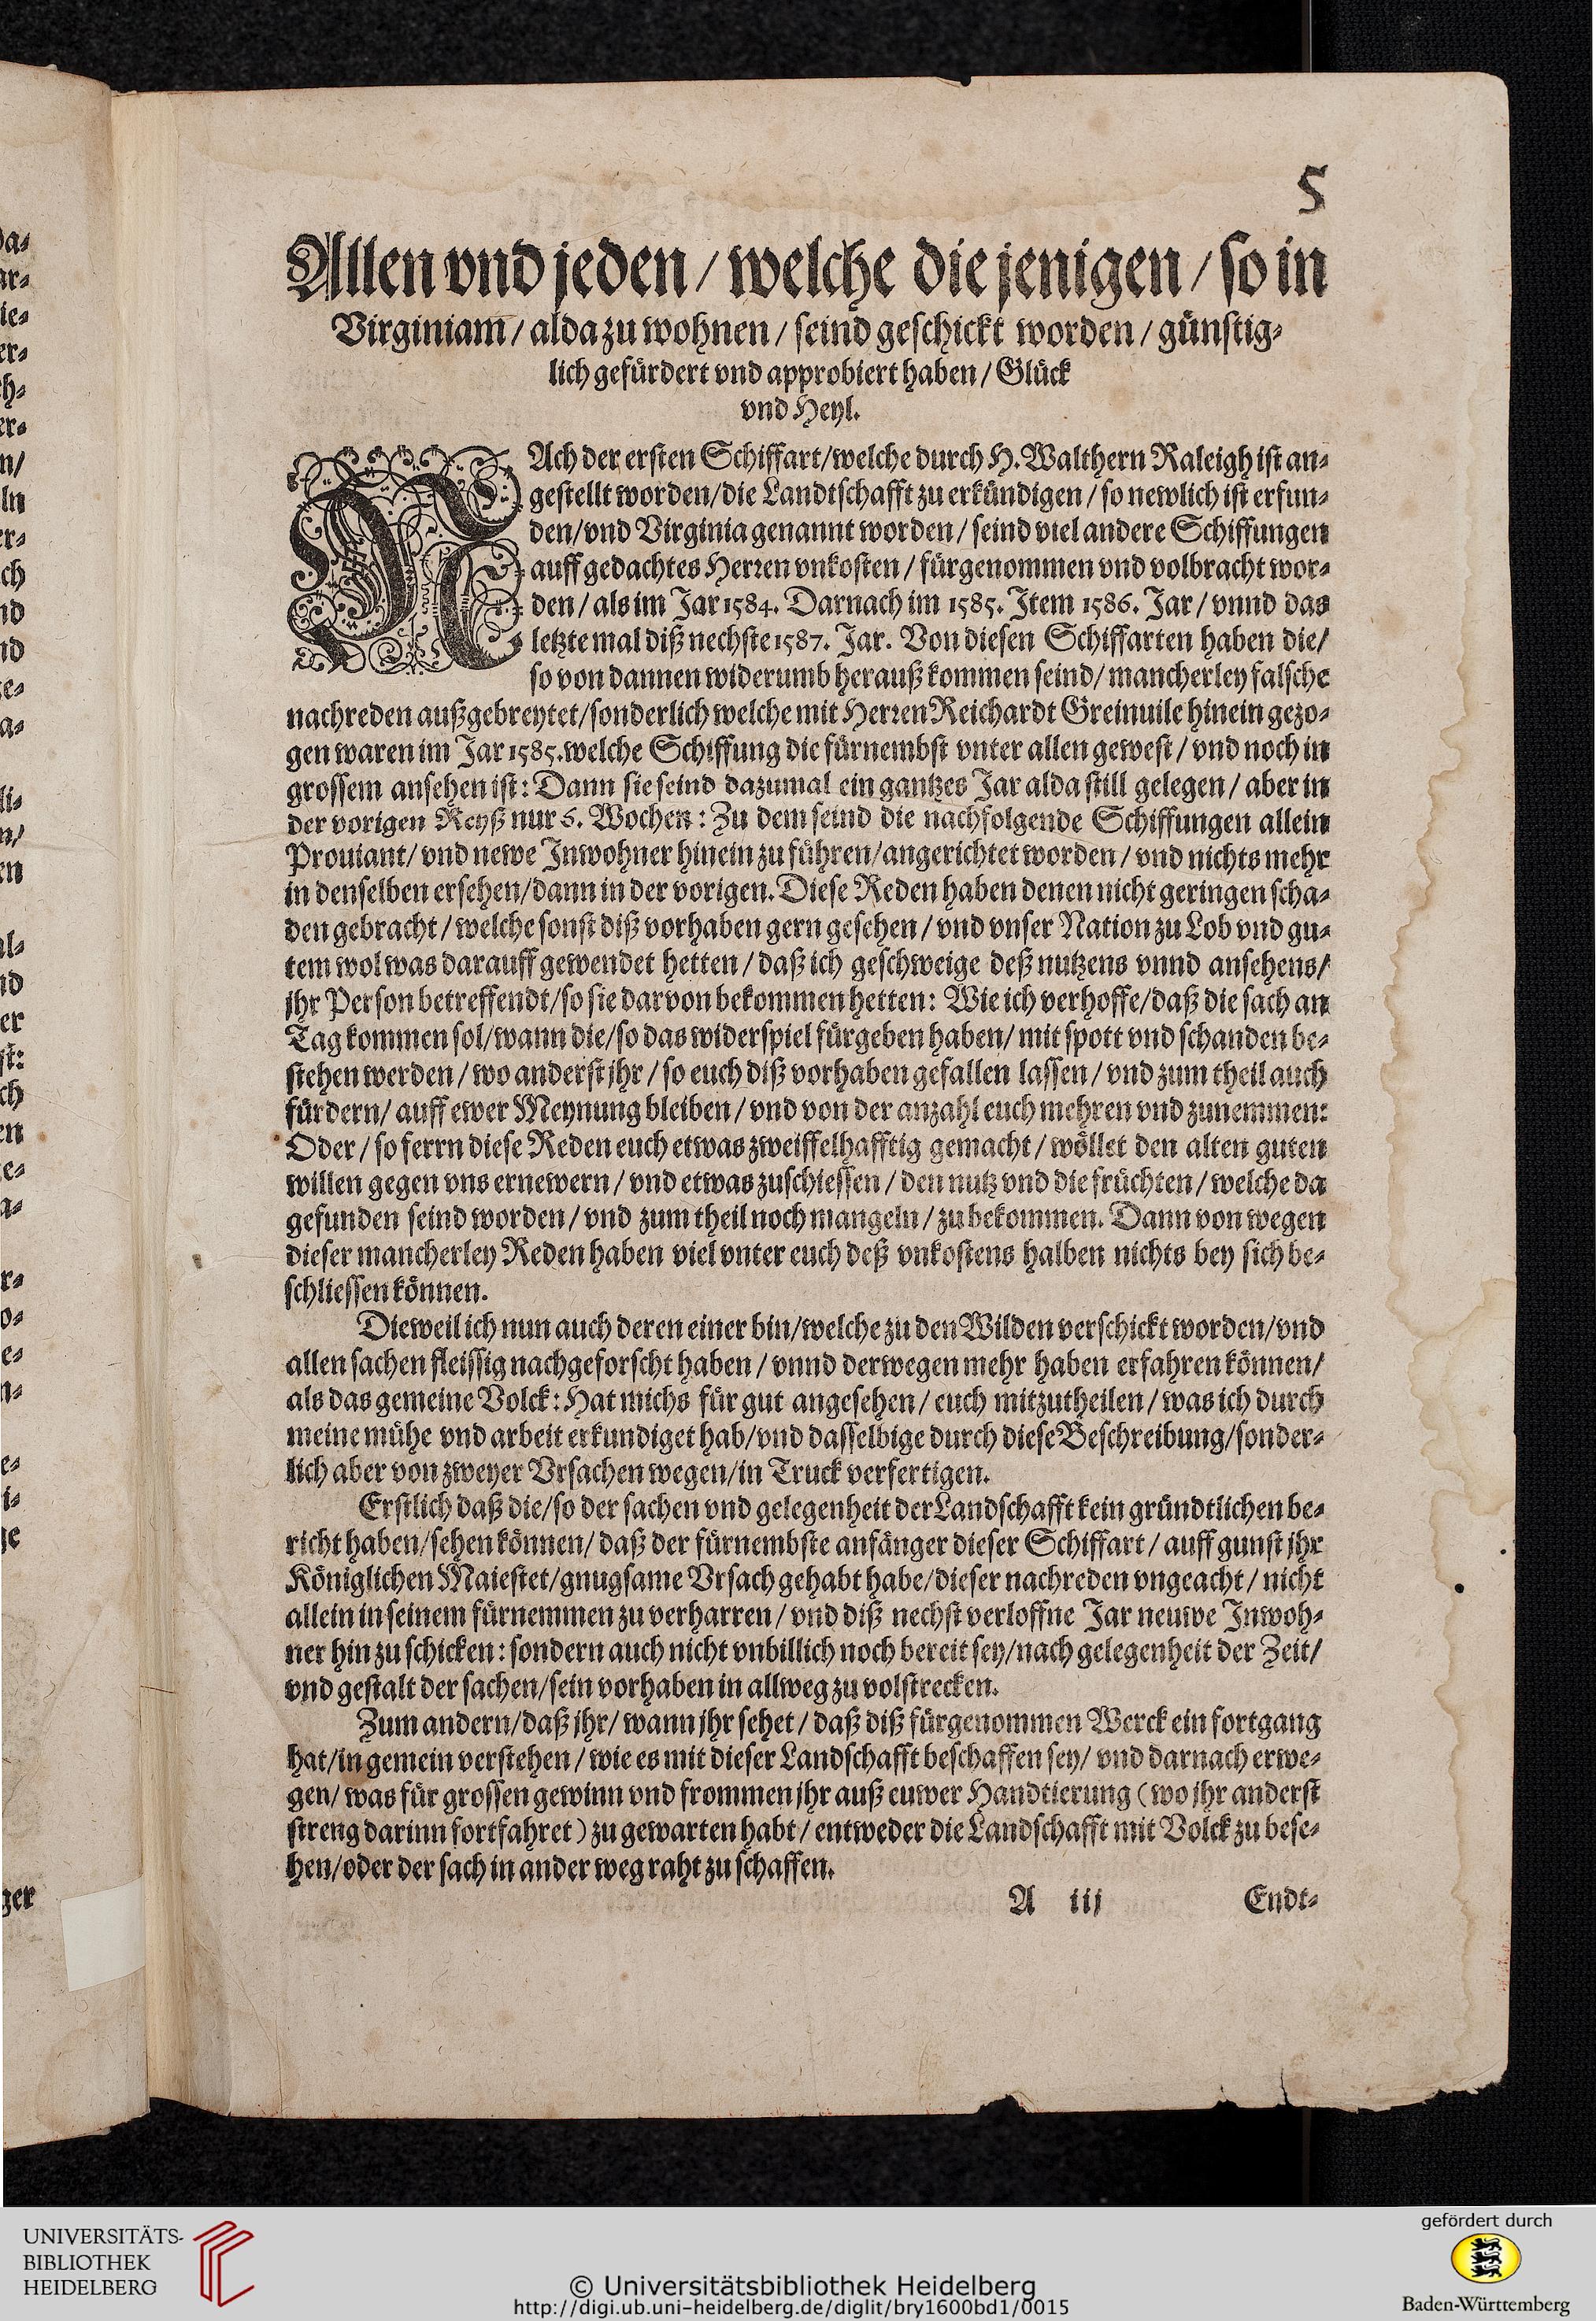 5
Allen vnd jeden / welche die jenigen / so in
Virginiam / alda zu wohnen / seind geschickt worden / günstig-
lich gefürdert vnd approbiert haben / Glück
vnd Heyl.
NAch der ersten Schiffart/welche durch H. Walthern Raleigh ist an-
gestellt worden/die Landtschafft zu erkündigen / so newlich ist erfun-
den/vnd Virginia genannt worden / seind viel andere Schiffungen
auff gedachtes Herren vnkosten / fürgenommen vnd volbracht wor-
den / als im Jar 1584. Darnach im 1585. Item 1586. Jar / vnnd das
letzte mal diß nechste 1587. Jar. Von diesen Schiffarten haben die/
so von dannen widerumb herauß kommen seind/ mancherley falsche
nachreden außgebreytet/sonderlich welche mit Herren Reichardt Greinuile hinein gezo-
gen waren im Jar 1585. welche Schiffung die fürnembst vnter allen gewest / vnd noch in
grossem ansehen ist: Dann sie seind dazumal ein gantzes Jar alda still gelegen / aber in
der vorigen Reyß nur 6. Wochen: Zu dem seind die nachfolgende Schiffungen allein
Prouiant/ vnd newe Inwohner hinein zu führen/angerichtet worden / vnd nichts mehr
in denselben ersehen/dann in der vorigen. Diese Reden haben denen nicht geringen scha-
den gebracht / welche sonst diß vorhaben gern gesehen / vnd vnser Nation zu Lob vnd gu-
tem wol was darauff gewendet hetten / daß ich geschweige deß nutzens vnnd ansehens/
jhr Person betreffendt/so sie darvon bekommen hetten: Wie ich verhoffe/daß die sach an
Tag kommen sol/wann die/so das widerspiel fürgeben haben/ mit spott vnd schanden be-
stehen werden / wo anderst jhr / so euch diß vorhaben gefallen lassen / vnd zum theil auch
fürdern/ auff ewer Meynung bleiben / vnd von der anzahl euch mehren vnd zunemmen:
Oder / so ferrn diese Reden euch etwas zweiffelhafftig gemacht / wöllet den alten guten
willen gegen vns ernewern / vnd etwas zuschiessen / den nutz vnd die früchten / welche da
gefunden seind worden / vnd zum theil noch mangeln / zu bekommen. Dann von wegen
dieser mancherley Reden haben viel vnter euch deß vnkostens halben nichts bey sich be-
schliessen können.
Dieweil ich nun auch deren einer bin/welche zu den Wilden verschickt worden/vnd
allen sachen fleissig nachgeforscht haben / vnnd derwegen mehr haben erfahren können/
als das gemeine Volck: Hat michs für gut angesehen / euch mitzutheilen / was ich durch
meine mühe vnd arbeit erkundiget hab/vnd dasselbige durch diese Beschreibung/sonder-
lich aber von zweyer Vrsachen wegen/in Truck verfertigen.
Erstlich daß die/so der sachen vnd gelegenheit der Landschafft kein gründtlichen be-
richt haben/sehen können/ daß der fürnembste anfänger dieser Schiffart / auff gunst jhr
Königlichen Maiestet/gnugsame Vrsach gehabt habe/dieser nachreden vngeacht / nicht
allein in seinem fürnemmen zu verharren / vnd diß nechst verloffne Jar neuwe Inwoh-
ner hin zu schicken: sondern auch nicht vnbillich noch bereit sey/nach gelegenheit der Zeit/
vnd gestalt der sachen/sein vorhaben in allweg zu volstrecken.
Zum andern/daß jhr/ wann jhr sehet / daß diß fürgenommen Werck ein fortgang
hat/in gemein verstehen / wie es mit dieser Landschafft beschaffen sey/ vnd darnach erwe-
gen/ was für grossen gewinn vnd frommen jhr auß euwer Handtierung (wo jhr anderst
streng darinn fortfahret) zu gewarten habt / entweder die Landschafft mit Volck zu bese-
hen/oder der sach in ander weg raht zu schaffen.
A iij Endt-
UNIVERSITÄTS-
BIBLIOTHEK
HEIDELBERG
© Universitätsbibliothek Heidelberg
http://digi.ub.uni-heidelberg.de/diglit/bry1600bd1/0015
gefördert durch
Baden-Württemberg